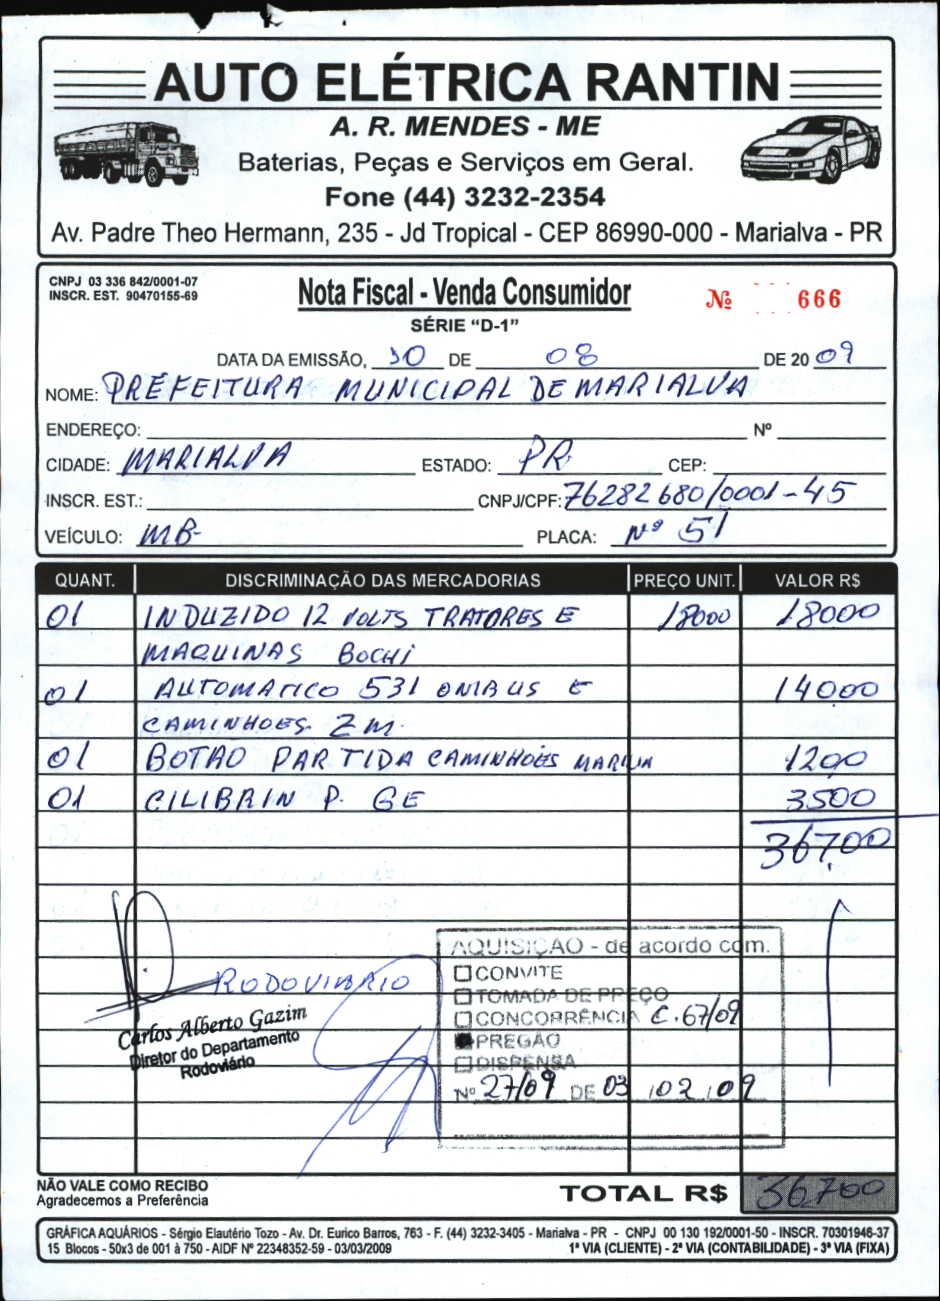 AUTO ELÉTRICA RANTIN
A. R. MENDES - ME
Baterias, Peças e Serviços em Geral.
Fone (44) 3232-2354
Av. Padre Theo Hermann, 235 - Jd Tropical - CEP 86990-000 - Marialva - PR
CNPJ 03 336 842/0001-07
INSCR. EST. 90470155-69
Nota Fiscal - Venda Consumidor
Nº 666
SÉRIE "D-1"
DATA DA EMISSÃO, DE 08 DE 2009
NOME: PREFEITURA MUNICIPAL DE MARIALVA
ENDEREÇO: Nº
CIDADE: MARIALVA ESTADO: PR CEP:
INSCR. EST.: CNPJ/CPF: 76282680/0001-45
VEÍCULO: MB- PLACA: Nº 51
QUANT. DISCRIMINAÇÃO DAS MERCADORIAS PREÇO UNIT. VALOR R$
01 INDUZIDO 12 VOLTS TRATORES E 18000 18000
MAQUINAS BOCHI
01 AUTOMATICO 531 ONIBUS E 14000
CAMINHOES ZM.
01 BOTAO PARTIDA CAMINHOES 1200
01 CILIBRIN P. GE 3500
367,00
AQUISIÇÃO - de acordo com.
CONVITE
RODOVIARIO
TOMADA DE PREÇO
CONCORRÊNCIA C. 67/09
Carlos Alberto Gazim
Diretor do Departamento
Rodoviário
PREGÃO
DISPENSA
Nº 27/09 DE 03 / 02 / 09
NÃO VALE COMO RECIBO
Agradecemos a Preferência
TOTAL R$ 36700
GRÁFICA AQUÁRIOS - Sérgio Elautério Tozo - Av. Dr. Eurico Barros, 763 - F. (44) 3232-3405 - Marialva - PR - CNPJ 00 130 192/0001-50 - INSCR. 70301946-37
15 Blocos - 50x3 de 001 à 750 - AIDF Nº 22348352-59 - 03/03/2009 1ª VIA (CLIENTE) - 2ª VIA (CONTABILIDADE) - 3ª VIA (FIXA)